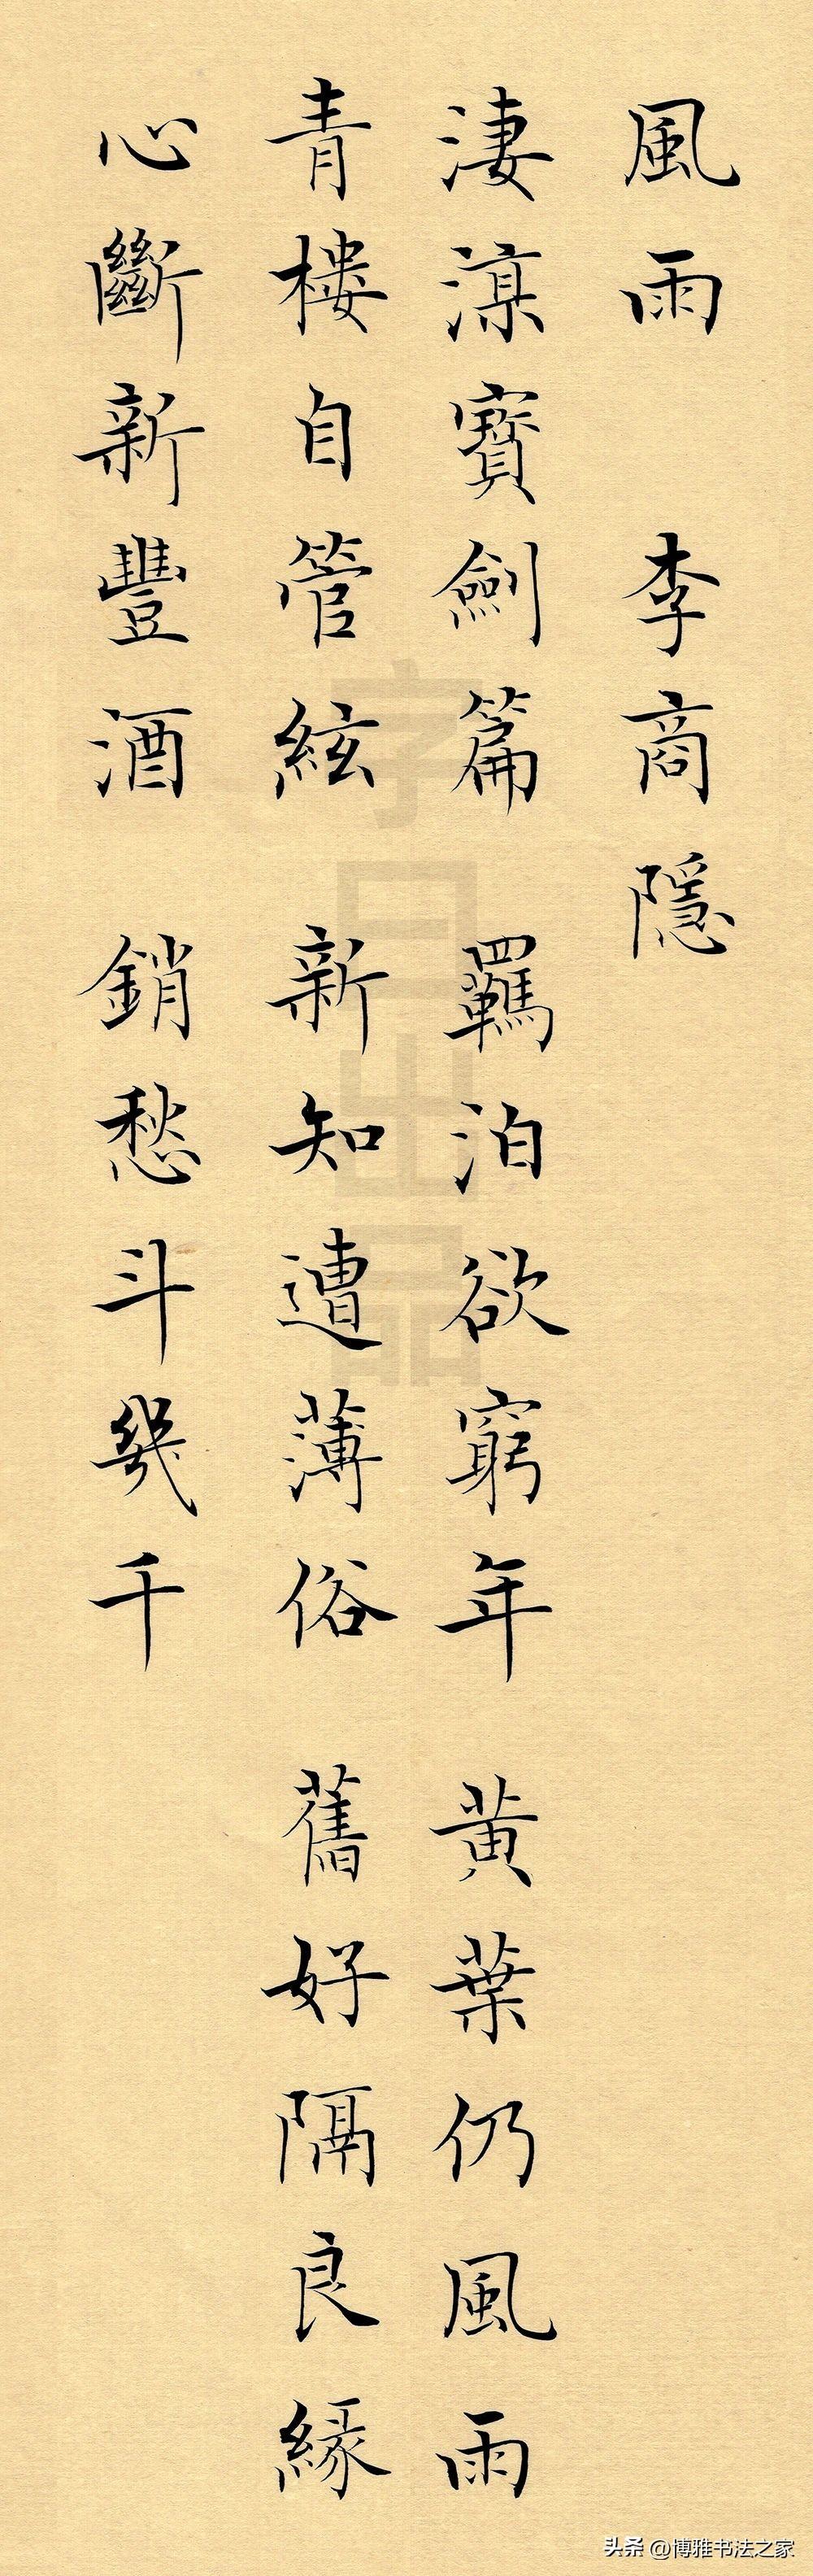 風雨 李商隱
淒涼寶劍篇 羈泊欲窮年 黃葉仍風雨
青樓自管絃 新知遭薄俗 舊好隔良緣
心斷新豐酒 銷愁斗幾千
字日出品
头条 @博雅书法之家